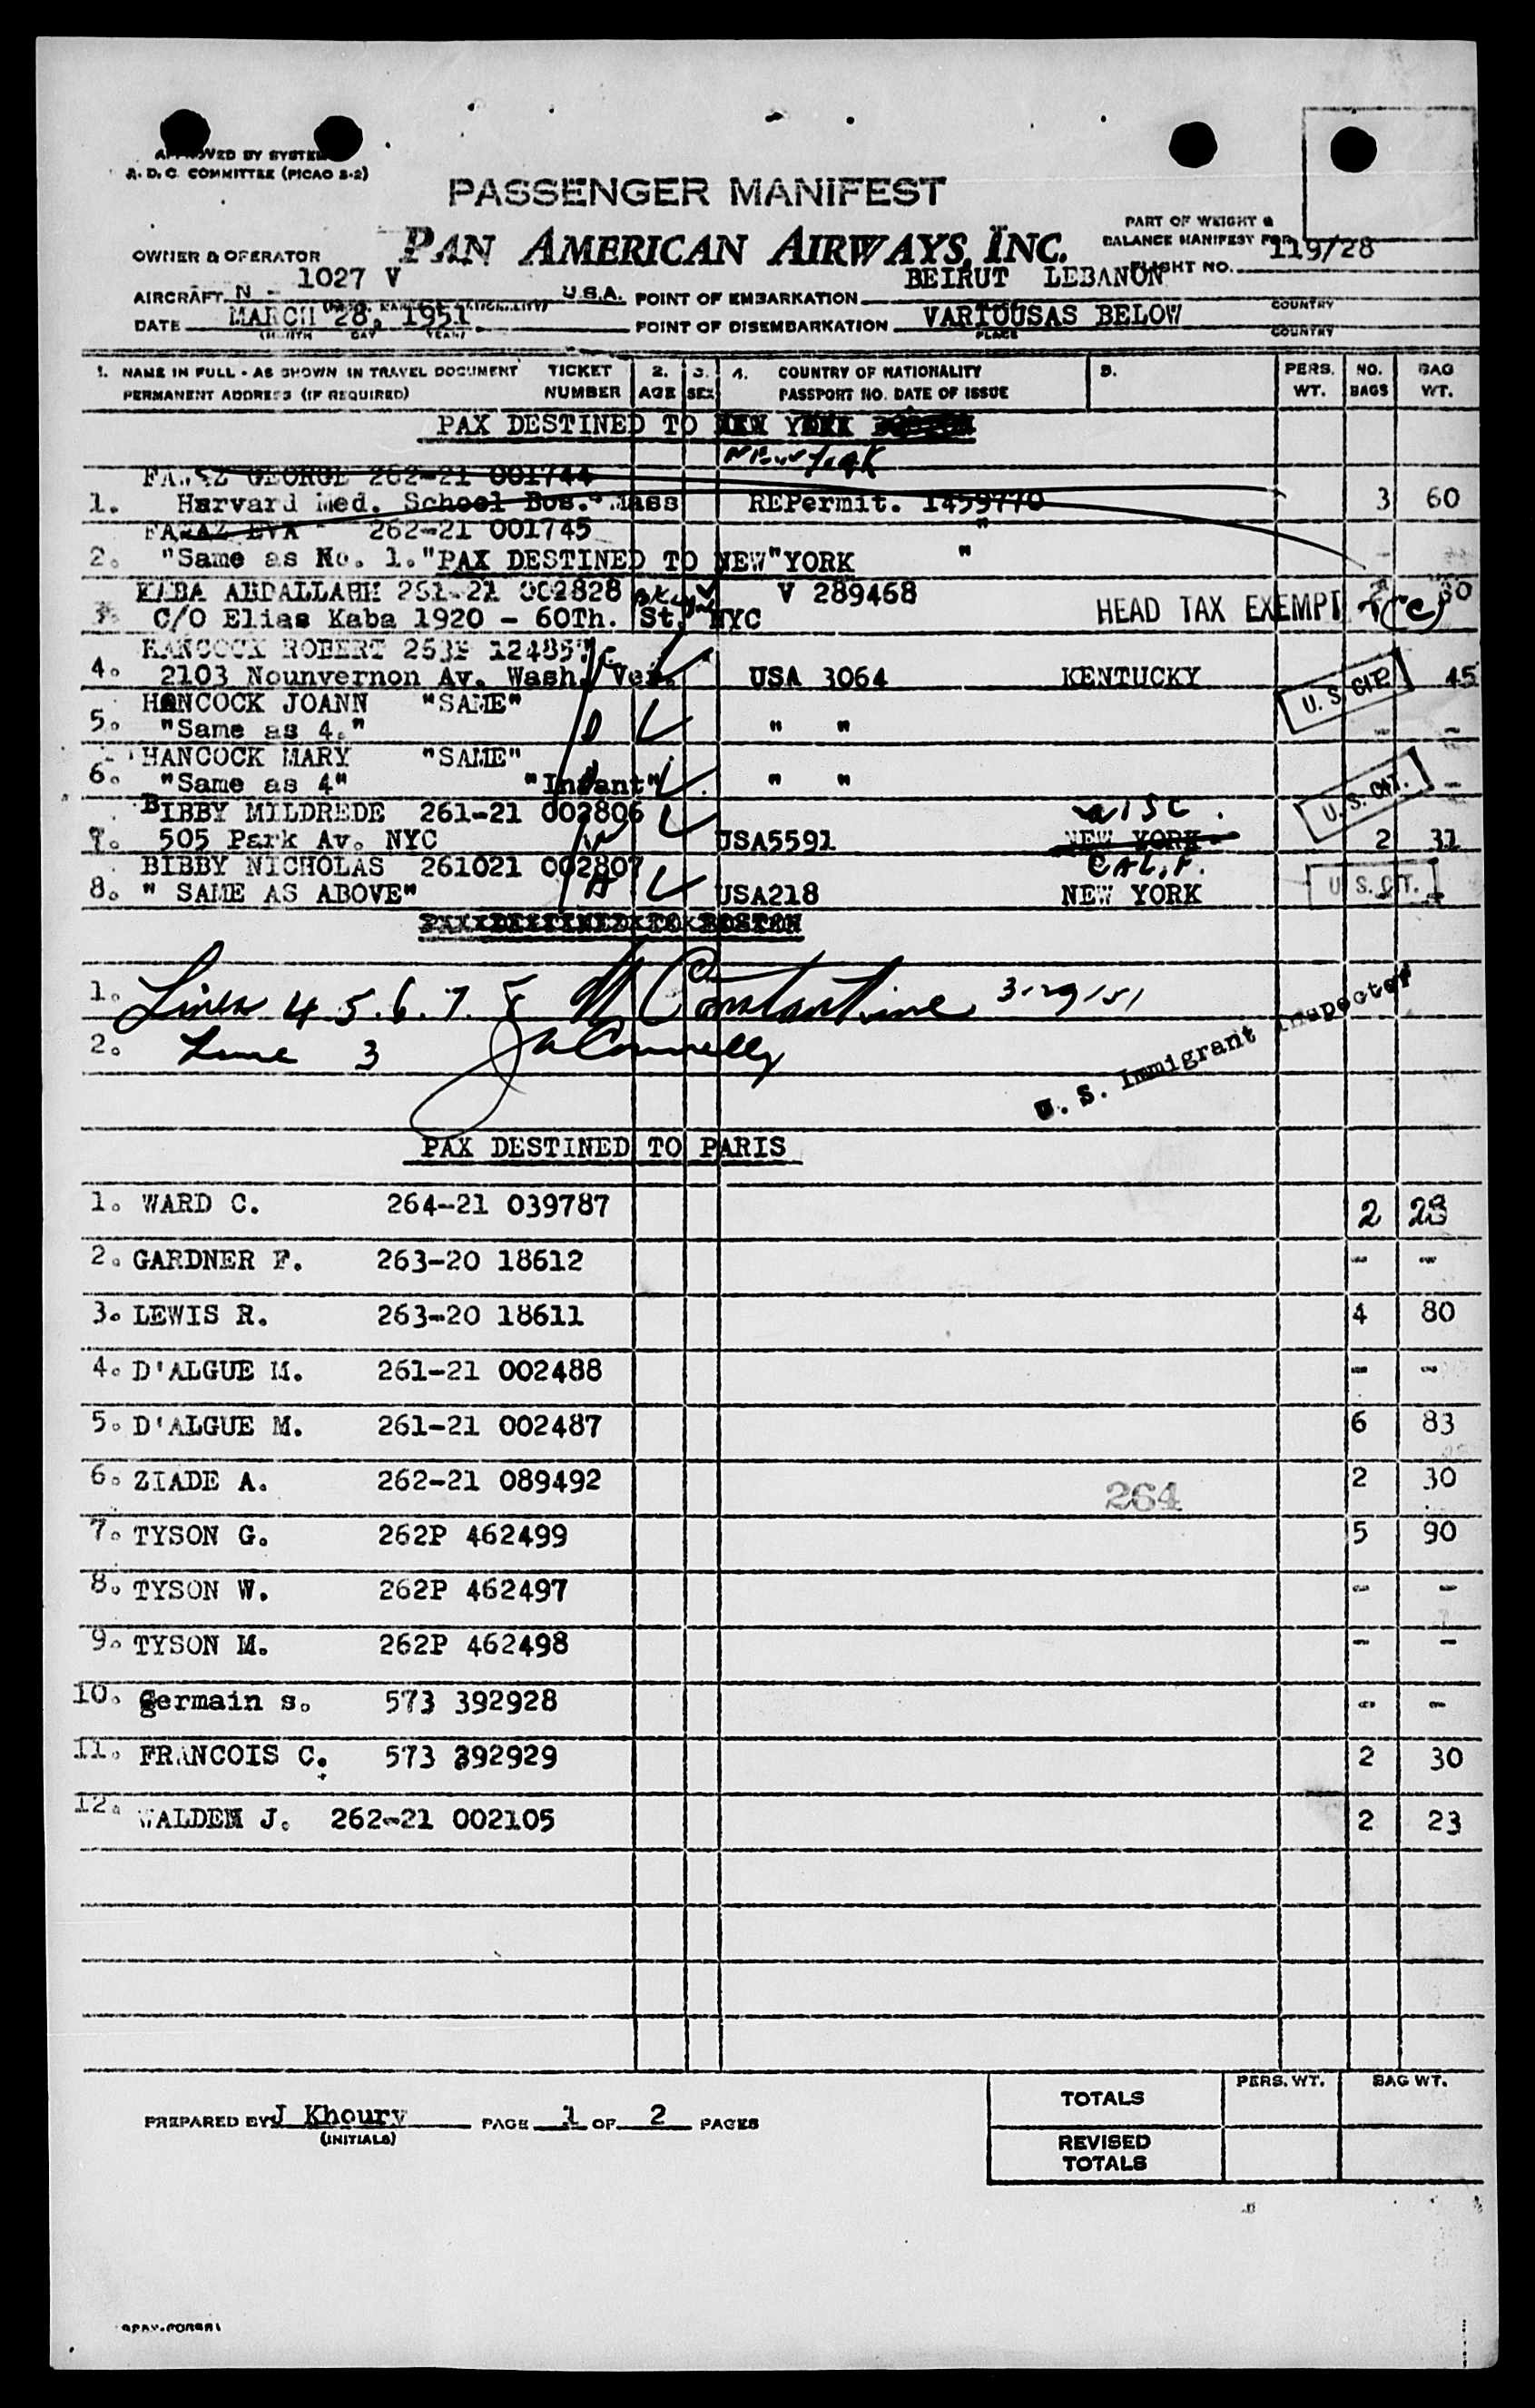 APPROVED BY SYSTEM
A. D. C. COMMITTEE (PICAO S-2)
PASSENGER MANIFEST
PAN AMERICAN AIRWAYS, INC.
PART OF WEIGHT &
BALANCE MANIFEST FOR
OWNER & OPERATOR
FLIGHT NO. 119/28
AIRCRAFT N - 1027 V U.S.A. POINT OF EMBARKATION BEIRUT LEBANON
COUNTRY
DATE MARCH 28, 1951. POINT OF DISEMBARKATION VARTOUSAS BELOW
(MONTH DAY YEAR) PLACE COUNTRY
1. NAME IN FULL - AS SHOWN IN TRAVEL DOCUMENT TICKET 2. 3. 4. COUNTRY OF NATIONALITY 5. PERS. NO. BAG
PERMANENT ADDRESS (IF REQUIRED) NUMBER AGE SEX PASSPORT NO. DATE OF ISSUE WT. BAGS WT.
PAX DESTINED TO NEW YORK
NEW YORK
FAWAZ GEORGE 262-21 001744
1. Harvard Med. School Bos. Mass REPermit. 1459770 3 60
FAWAZ EVA 262-21 001745 "
2. "Same as No. 1." PAX DESTINED TO NEW "YORK "
KABA ABDALLAHH 261-21 002828 V 289468 30
3. C/O Elias Kaba 1920 - 60Th. St. NYC HEAD TAX EXEMPT
HANCOCK ROBERT 253P 124857
4. 2103 Nounvernon Av. Wash. Ver. USA 3064 KENTUCKY U. S. CIT. 45
HANCOCK JOANN "SAME"
5. "Same as 4." " " - -
HANCOCK MARY "SAME"
6. "Same as 4" "Infant" " " U. S. CIT. -
BIBBY MILDREDE 261-21 002806 WISC.
7. 505 Park Av. NYC USA5591 NEW YORK 2 31
BIBBY NICHOLAS 261021 002807 CALIF.
8. " SAME AS ABOVE" USA218 NEW YORK U. S. CIT.
PAX DESTINED TO BOSTON
1. Lines 4 5. 6. 7. 8 N Constantine 3/29/51
2. Line 3 JA Connelly
U. S. Immigrant Inspector
PAX DESTINED TO PARIS
1. WARD C. 264-21 039787 2 23
2. GARDNER F. 263-20 18612 - -
3. LEWIS R. 263-20 18611 4 80
4. D'ALGUE M. 261-21 002488 - -
5. D'ALGUE M. 261-21 002487 6 83
6. ZIADE A. 262-21 089492 264 2 30
7. TYSON G. 262P 462499 5 90
8. TYSON W. 262P 462497 - -
9. TYSON M. 262P 462498 - -
10. germain s. 573 392928 - -
11. FRANCOIS C. 573 392929 2 30
12. WALDEN J. 262-21 002105 2 23
PERS. WT. BAG WT.
TOTALS
PREPARED BY J Khoury PAGE 1 OF 2 PAGES
(INITIALS)
REVISED
TOTALS